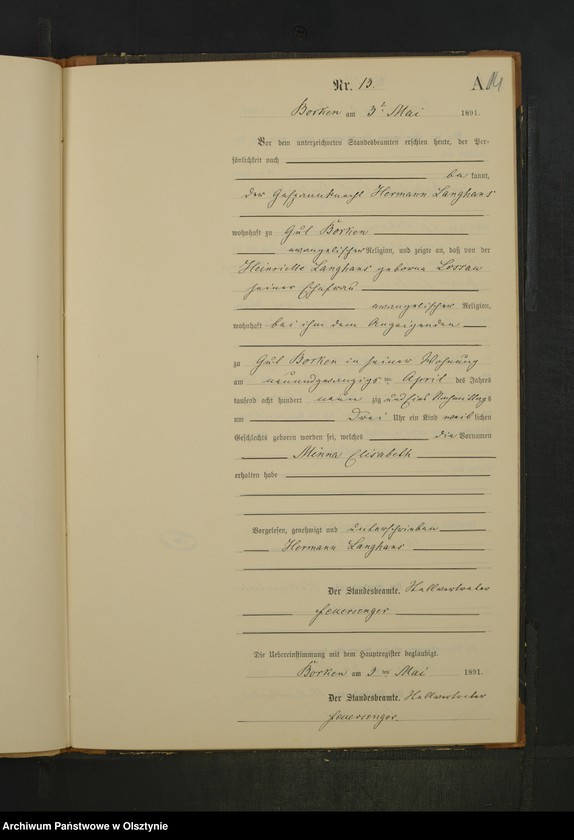 Nr. 13.
A. 14
Borken am 3t Mai 1891.
Vor dem unterzeichneten Standesbeamten erschien heute, der Per-
sönlichkeit nach
be kannt,
der Gespannknecht Hermann Langhans
wohnhaft zu Gut Borken
evangelischer Religion, und zeigte an, daß von der
Heinriette Langhans geborne
seiner Ehefrau
evangelischer Religion,
wohnhaft bei ihm dem Anzeigenden
zu Gut Borken in seiner Wohnung
am neunundzwanzigsten April des Jahres
tausend acht hundert neun zig und eins Nachmittags
um Drei Uhr ein Kind weib lichen
Geschlechts geboren worden sei, welches die Vornamen
Minna Elisabeth
erhalten habe
Vorgelesen, genehmigt und unterschrieben
Hermann Langhans
Der Standesbeamte. Stellvertreter
Feuersenger
Die Uebereinstimmung mit dem Hauptregister beglaubigt.
Borken am Mai 1891.
Der Standesbeamte. Stellvertreter
Feuersenger.
Archiwum Państwowe w Olsztynie